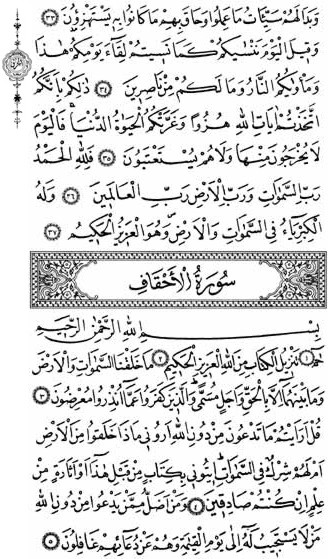 وَبَدَا لَهُمْ سَيِّئَاتُ مَا عَمِلُوا وَحَاقَ بِهِمْ مَا كَانُوا بِهِ يَسْتَهْزِؤُنَ ﴿٣٣﴾
وَقِيلَ الْيَوْمَ نَنْسٰيكُمْ كَمَا نَسِيتُمْ لِقَاءَ يَوْمِكُمْ هٰذَا
وَمَأْوٰيكُمُ النَّارُ وَمَا لَكُمْ مِنْ نَاصِرِينَ ﴿٣٤﴾ ذٰلِكُمْ بِاَنَّكُمُ
اتَّخَذْتُمْ اٰيَاتِ اللّٰهِ هُزُوًا وَغَرَّتْكُمُ الْحَيٰوةُ الدُّنْيَا فَالْيَوْمَ
لَا يُخْرَجُونَ مِنْهَا وَلَا هُمْ يُسْتَعْتَبُونَ ﴿٣٥﴾ فَلِلّٰهِ الْحَمْدُ
رَبِّ السَّمٰوَاتِ وَرَبِّ الْاَرْضِ رَبِّ الْعَالَمِينَ ﴿٣٦﴾ وَلَهُ
الْكِبْرِيَاءُ فِي السَّمٰوَاتِ وَالْاَرْضِ وَهُوَ الْعَزِيزُ الْحَكِيمُ ﴿٣٧﴾
سُورَةُ الْاَحْقَافِ
بِسْمِ اللّٰهِ الرَّحْمٰنِ الرَّحِيمِ
حٰمٓ ﴿١﴾ تَنْزِيلُ الْكِتَابِ مِنَ اللّٰهِ الْعَزِيزِ الْحَكِيمِ ﴿٢﴾ مَا خَلَقْنَا السَّمٰوَاتِ وَالْاَرْضَ
وَمَا بَيْنَهُمَا اِلَّا بِالْحَقِّ وَاَجَلٍ مُسَمًّى وَالَّذِينَ كَفَرُوا عَمَّا اُنْذِرُوا مُعْرِضُونَ ﴿٣﴾
قُلْ اَرَاَيْتُمْ مَا تَدْعُونَ مِنْ دُونِ اللّٰهِ اَرُونِي مَاذَا خَلَقُوا مِنَ الْاَرْضِ
اَمْ لَهُمْ شِرْكٌ فِي السَّمٰوَاتِ اِيتُونِي بِكِتَابٍ مِنْ قَبْلِ هٰذَا اَوْ اَثَارَةٍ مِنْ
عِلْمٍ اِنْ كُنْتُمْ صَادِقِينَ ﴿٤﴾ وَمَنْ اَضَلُّ مِمَّنْ يَدْعُوا مِنْ دُونِ اللّٰهِ
مَنْ لَا يَسْتَجِيبُ لَهُ اِلٰى يَوْمِ الْقِيٰمَةِ وَهُمْ عَنْ دُعَائِهِمْ غَافِلُونَ ﴿٥﴾